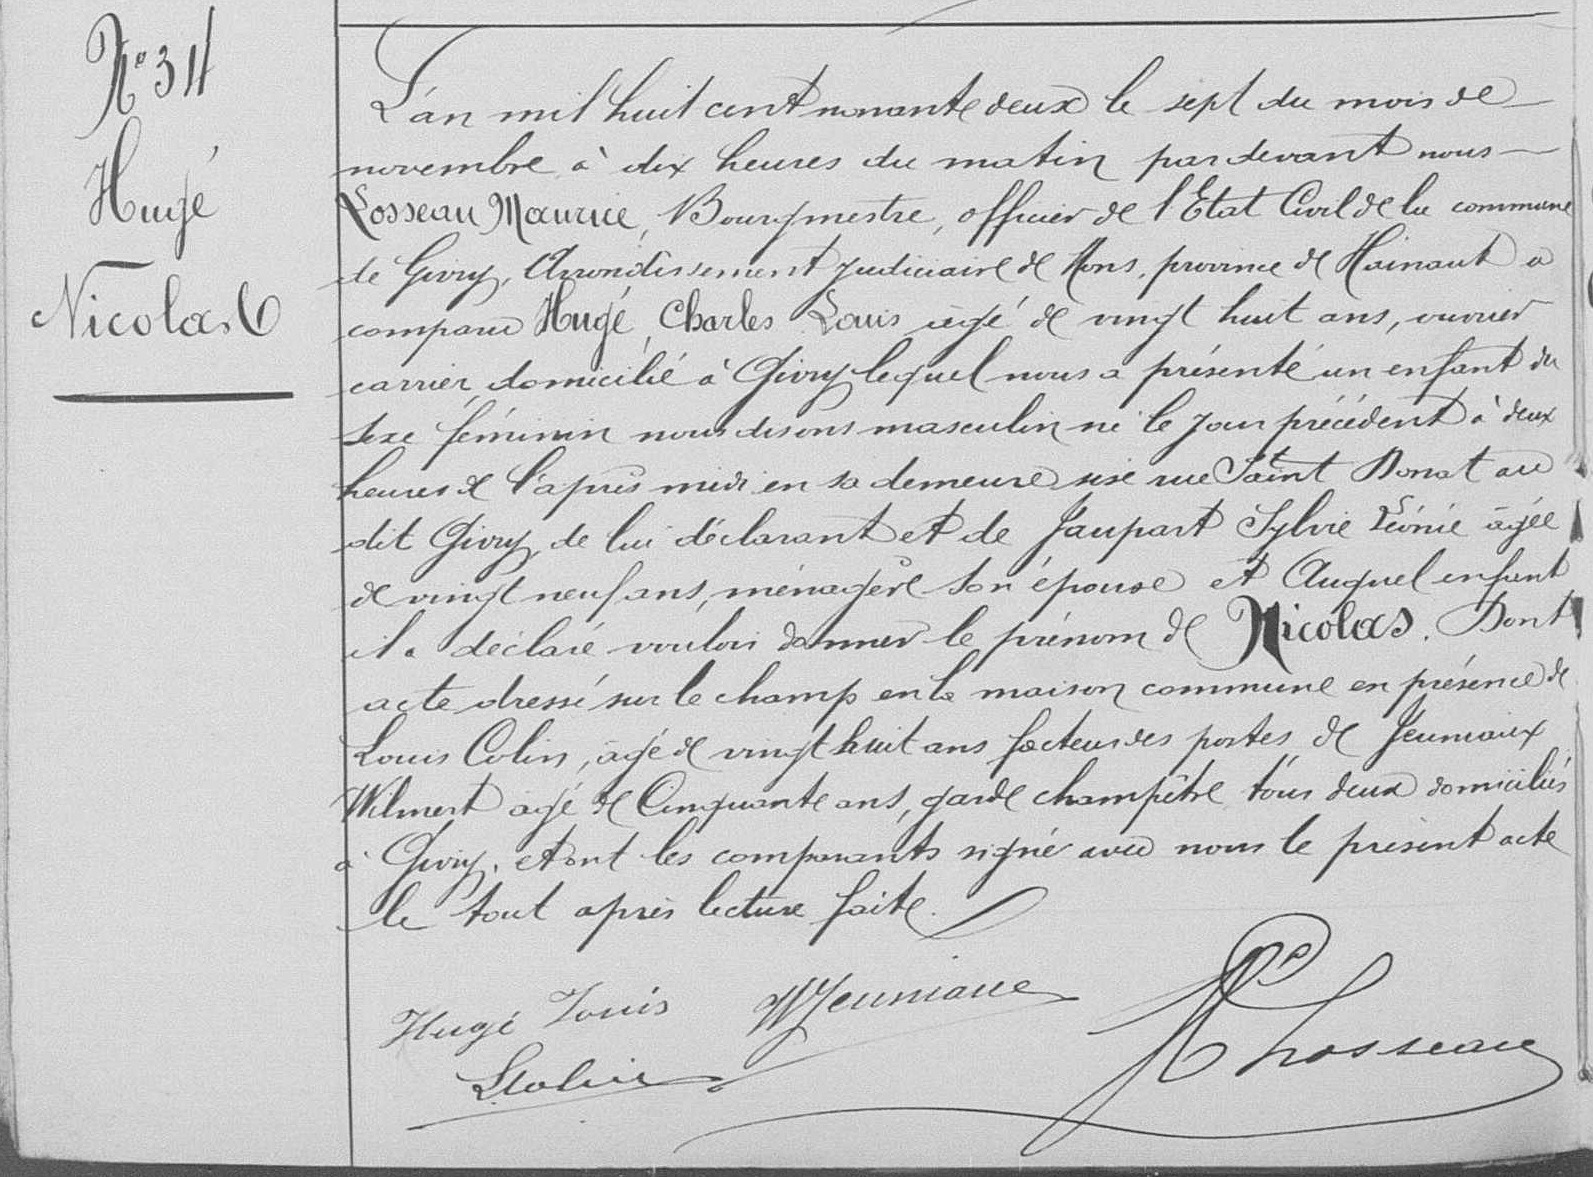 N° 34
Hugé
Nicolas
L'an mil huit cent nonante deux le sept du mois de
novembre à dix heures du matin pardevant nous
Losseau Maurice, Bourgmestre, officier de l'Etat Civil de la commune
de Givry, Arrondissement judiciaire de Mons, province de Hainaut a
comparu Hugé, Charles Louis âgé de vingt huit ans, ouvrier
carrier, domicilié à Givry lequel nous a présenté un enfant du
sexe féminin nous disons masculin né le jour précédent à deux
heures de l'après midi en sa demeure sise rue Saint Donat au
dit Givry, de lui déclarant et de Jaupart Sylvie Léonie âgée
de vingt neuf ans, ménagère son épouse et Auquel enfant
il a déclaré vouloir donner le prénom de Nicolas. Dont
acte dressé sur le champ en la maison commune en présence de
Louis Colin, âgé de vingt huit ans facteur des postes, de Jeuniaux
Wilmert agé de Cinquante ans, garde champêtre tous deux domiciliés
à Givry, et ont les comparants signé avec nous le présent acte
le tout après lecture faite.
Hugé Louis WJeuniaux
LColin Losseau